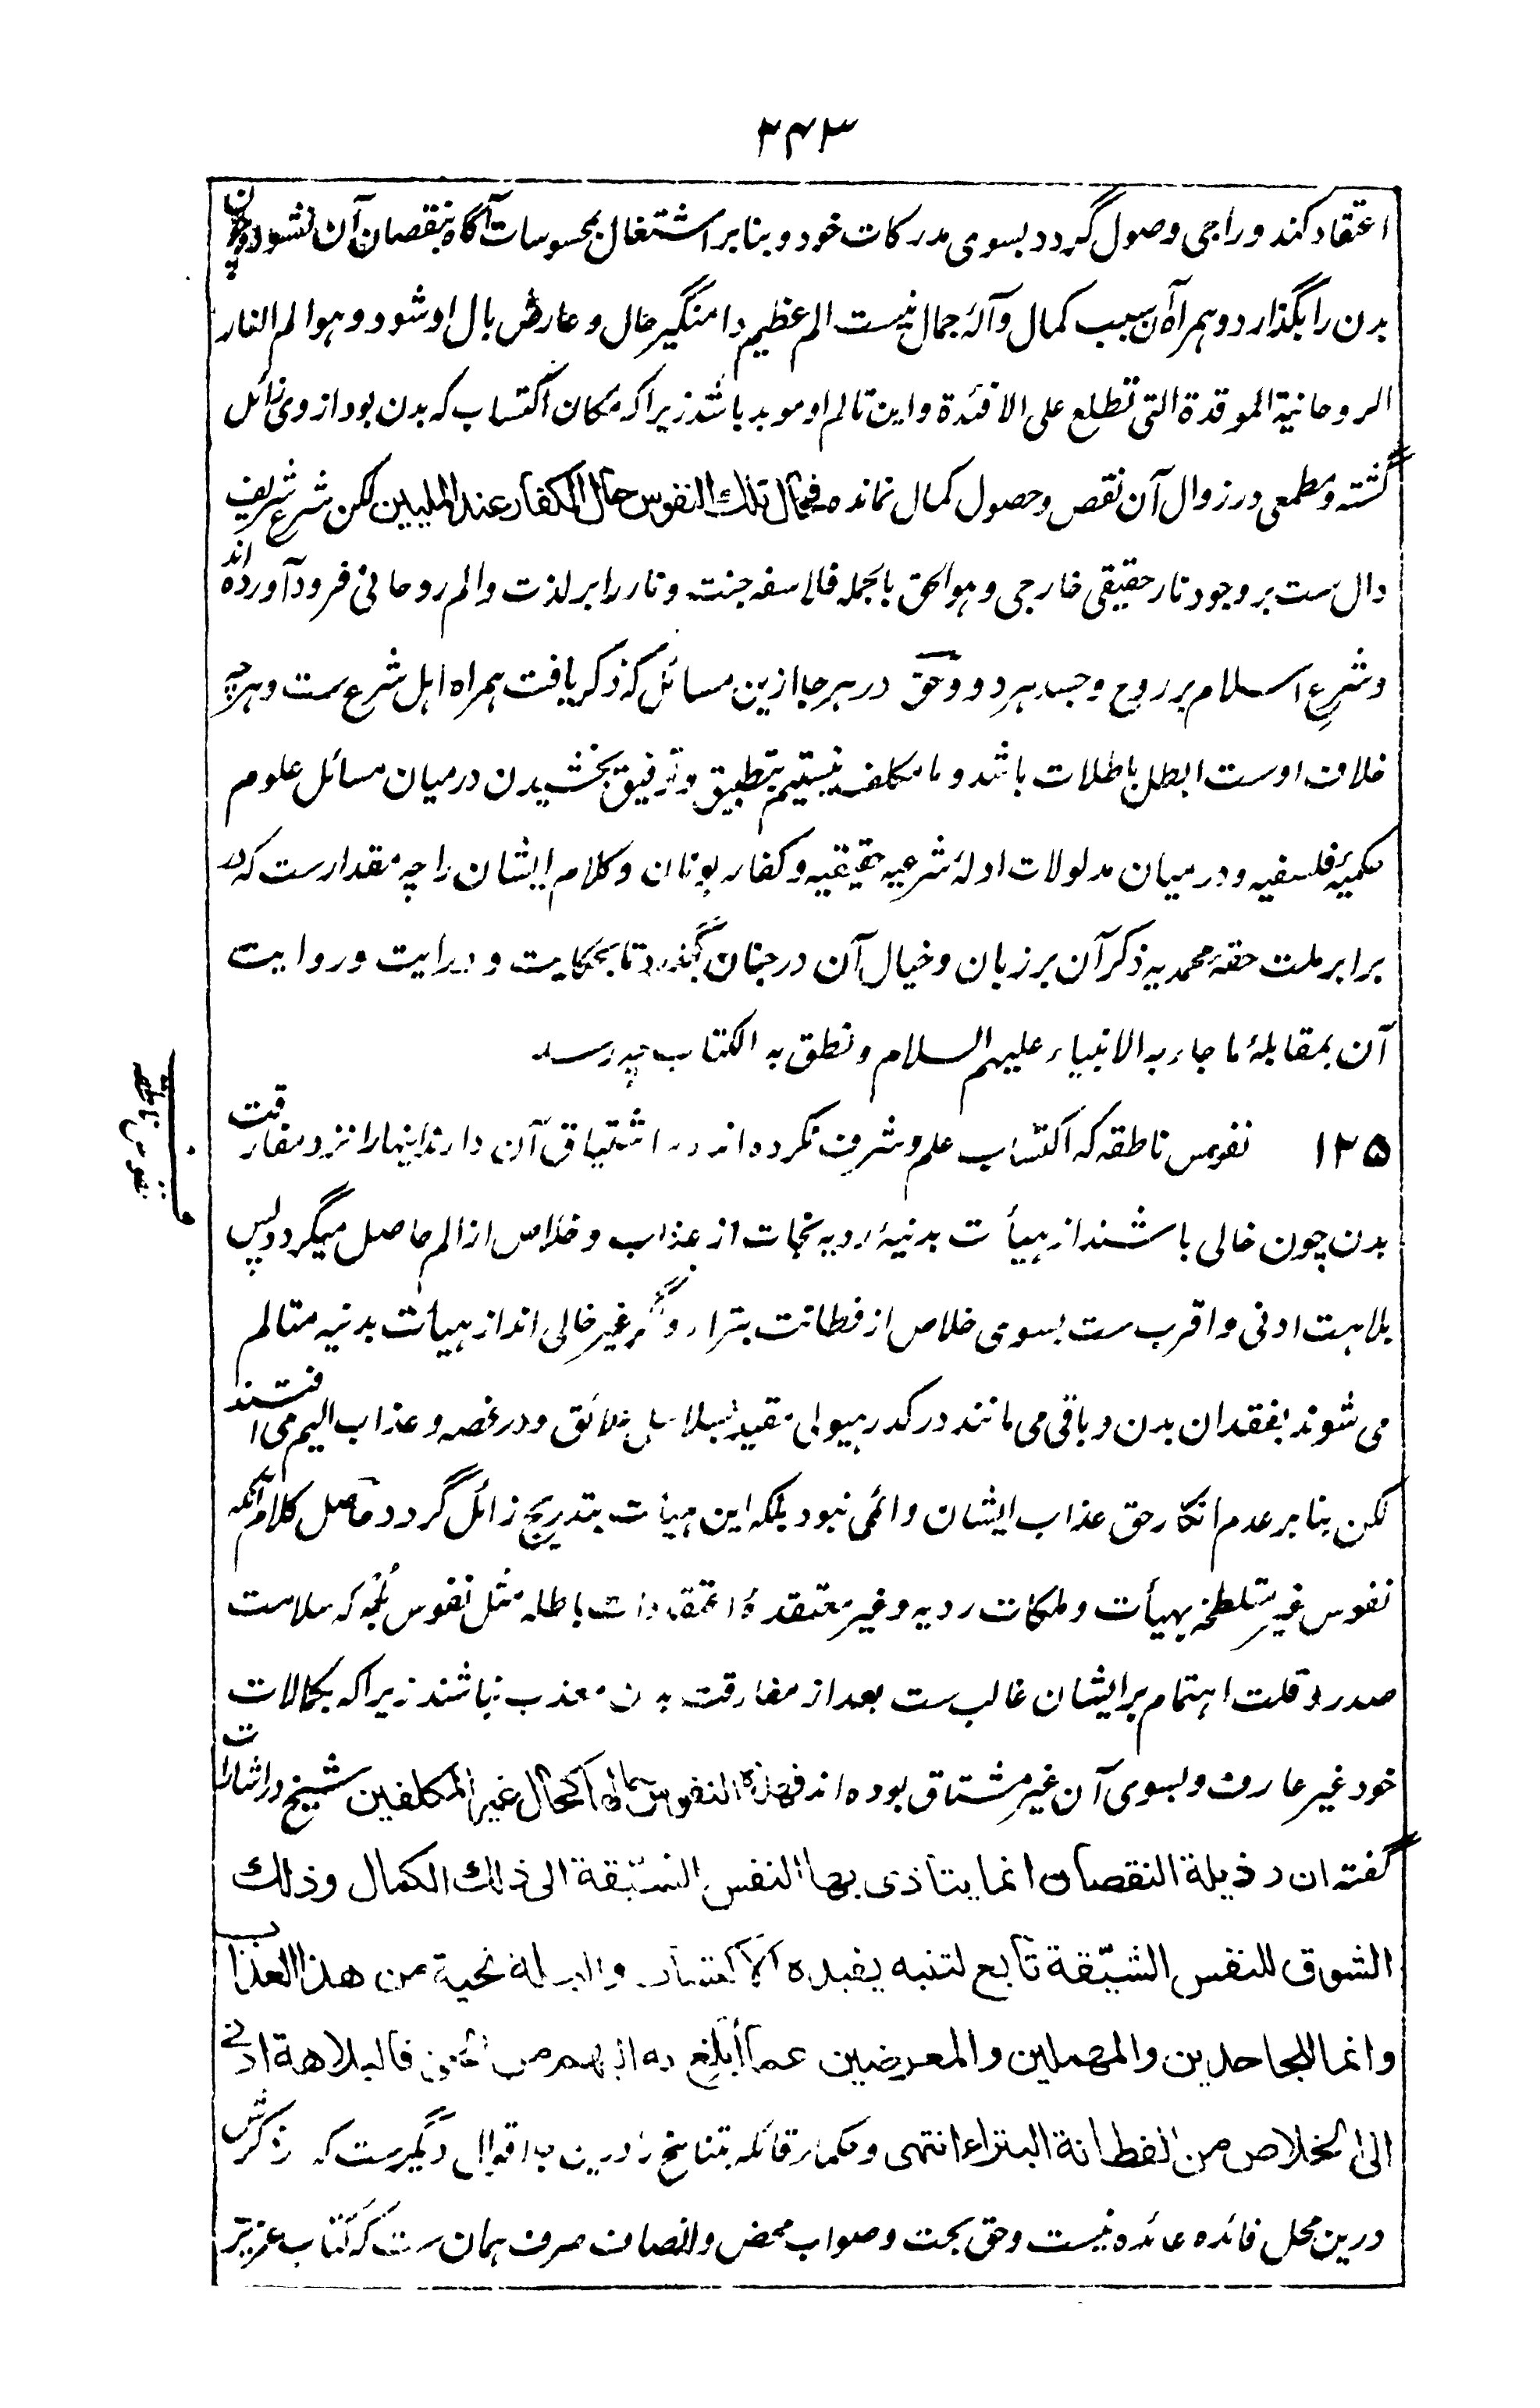 ۲۴۳
اعتقاد کند و راجی وصول گردد بسوی مدرکات خود و بنابر اشتغال بمحسوسات آگاه بنقصان آن نشود و چون
بدن را بگذارد و همراه آن سبب کمال و آلهٔ جمال نیست الم عظیم دامنگیر حال و عارض بال او شود و هو الم النار
الروحانیة الموقدة التی تطلع علی الافئدة و این تالم او موبد باشد زیرا که مکان اکتساب که بدن بود از وی زائل
گشته و مطمعی در زوال آن نقص و حصول کمال نمانده فحال تلك النفوس حال الکفار عند الملیین لکن شرع شریف
دال ست بر وجود نار حقیقی خارجی و هو الحق بالجمله فلاسفه جنت و نار را بر لذت و الم روحانی فرود آورده اند
و شرع اسلام بر روح و جسد هر دو و حق در هر جا ازین مسائل که ذکر یافت همراه اهل شرع ست و هر چه
خلاف اوست ابطل باطلات باشد و ما مکلف نیستیم بتطبیق و توفیق بخشیدن درمیان مسائل علوم
حکمیهٔ فلسفیه و درمیان مدلولات ادلهٔ شرعیه حقیقیه و کفار یونان و کلام ایشان را چه مقدارست که در
برابر ملت حقهٔ محمدیه ذکر آن بر زبان و خیال آن در جنان گذرد تا بحکایت و درایت و روایت
آن بمقابلهٔ ما جاء به الانبیاء علیهم السلام و نطق به الکتاب چه رسد
۱۲۵ نفوس ناطقه که اکتساب علم و شرف نکرده اند نه اشتیاق آن دارند اینها را نزد مفارقت
نفوس ناطقه
بدن چون خالی باشند از هیأت بدنیهٔ ردیه نجات از عذاب و خلاص از الم حاصل میگردد پس
بلاهت ادنی و اقرب ست بسوی خلاص از فطانت بترا و اگر غیر خالی اند از هیأت بدنیه متالم
می شوند بفقدان بدن و باقی می مانند در کدر هیولی مقید بسلاسل علائق و در غصه و عذاب الیم می افتند
لکن بنابر عدم انکار حق عذاب ایشان دائمی نبود بلکه این هیأت بتدریج زائل گردد حاصل کلام آنکه
نفوس غیر متلطخه بهیأت و ملکات ردیه و غیر معتقدهٔ اعتقادات باطله مثل نفوس بُله که سلامت
صدر و قلت اهتمام بر ایشان غالب ست بعد از مفارقت بدن معذب نباشند زیرا که بکمالات
خود غیر عارف و بسوی آن غیر مشتاق بوده اند فهذه النفوس حالها کحال غیر المکلفین شیخ در اشارات
گفته ان رذیلة النقصان انما یتاذی بها النفس الشیّقة الی ذلك الکمال وذلك
الشوق للنفس الشیّقة تابع لتنبه یفیده الاکتساب والبله نجیة من هذا العذاب
وانما للجاحدین والمهملین والمعرضین عما أبلغ به الیهم من الحق فالبلاهة ادنی
الی الخلاص من الفطانة البتراء انتهی و حکماء قائله بتناسخ را درین باب اقوال دیگرست که ذکرش
درین محل فائده عائده نیست و حق بحت و صواب محض و انصاف صرف همان ست که کتاب عزیز